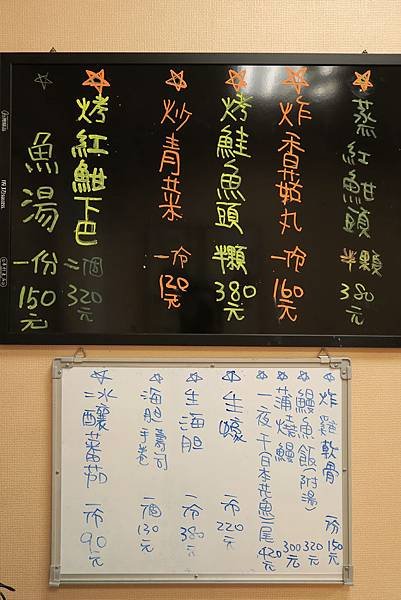 蒸紅魽頭 半顆 380元
炸香菇丸 一份 160元
烤鮭魚頭 半顆 380元
炒青菜 一份 120元
烤紅魽下巴 二個 320元
魚湯 一份 150元
炸雞軟骨 一份 150元
鰻魚飯(附湯) 320元
蒲燒鰻 300元
一夜干日本花魚一尾 420元
生蠔 一份 220元
生海胆 一份 380元
海胆壽司手卷 一個 130元
冰釀蕃茄 一份 90元